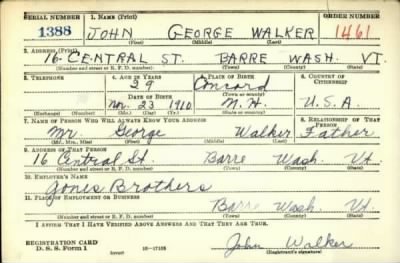 SERIAL NUMBER 1. NAME (Print) ORDER NUMBER
1388 JOHN GEORGE WALKER 1461
(First) (Middle) (Last)
2. ADDRESS (Print)
16 CENTRAL ST. BARRE WASH. VT.
(Number and street or R. F. D. number) (Town) (County) (State)
3. TELEPHONE 4. AGE IN YEARS 5. PLACE OF BIRTH 6. COUNTRY OF CITIZENSHIP
29 Concord
DATE OF BIRTH (Town or county)
Nov. 23 1910 N.H. U.S.A.
(Exchange) (Number) (Mo.) (Day) (Yr.) (State or country)
7. NAME OF PERSON WHO WILL ALWAYS KNOW YOUR ADDRESS 8. RELATIONSHIP OF THAT PERSON
Mr. George Walker Father
(Mr., Mrs., Miss) (First) (Middle) (Last)
9. ADDRESS OF THAT PERSON
16 Central St. Barre Wash. Vt.
(Number and street or R. F. D. number) (Town) (County) (State)
10. EMPLOYER'S NAME
Jones Brothers
11. PLACE OF EMPLOYMENT OR BUSINESS
Barre Wash. Vt
(Number and street or R. F. D. number) (Town) (County) (State)
I AFFIRM THAT I HAVE VERIFIED ABOVE ANSWERS AND THAT THEY ARE TRUE.
REGISTRATION CARD
D. S. S. Form 1 (over) 16-17105 John Walker
(Registrant's signature)